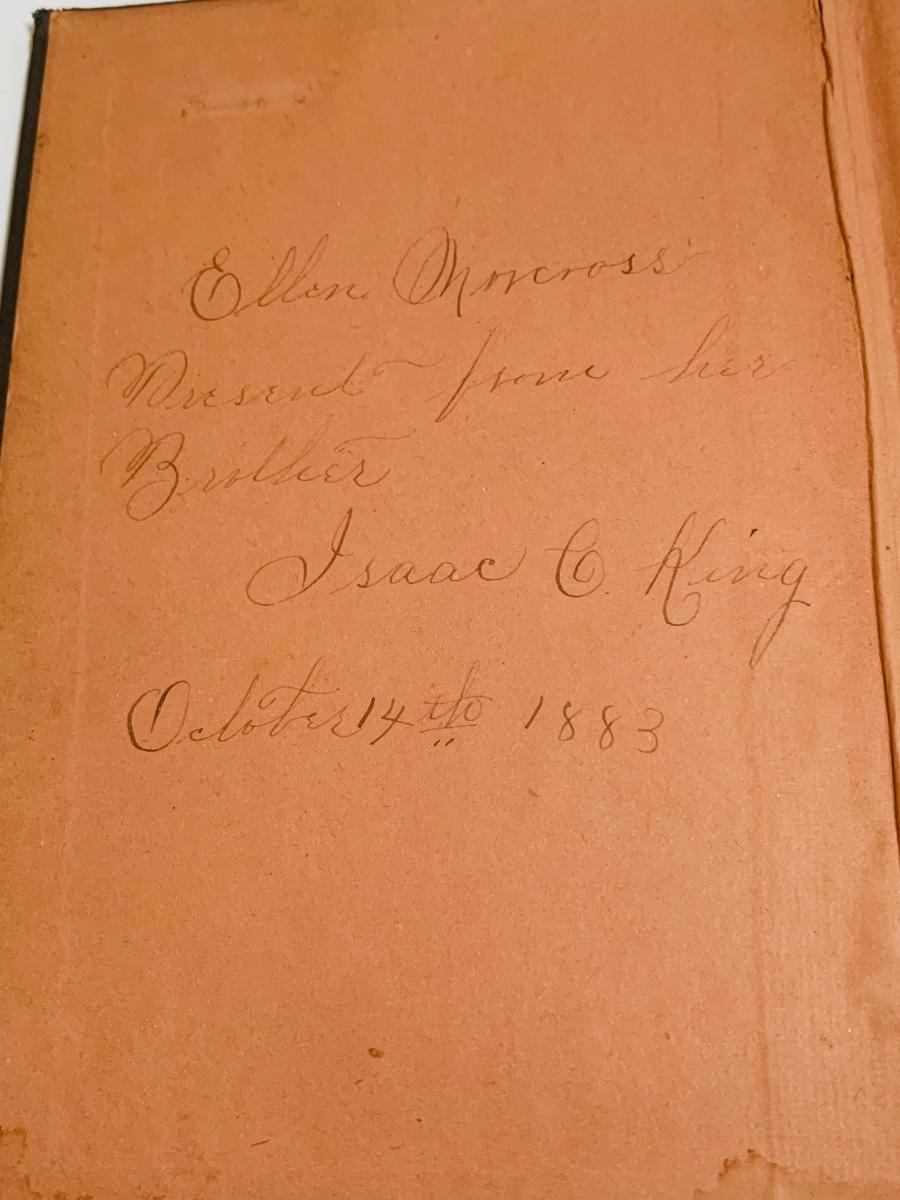 Ellen Norcross
Present from her
Brother
Isaac C. King
October 14th 1883